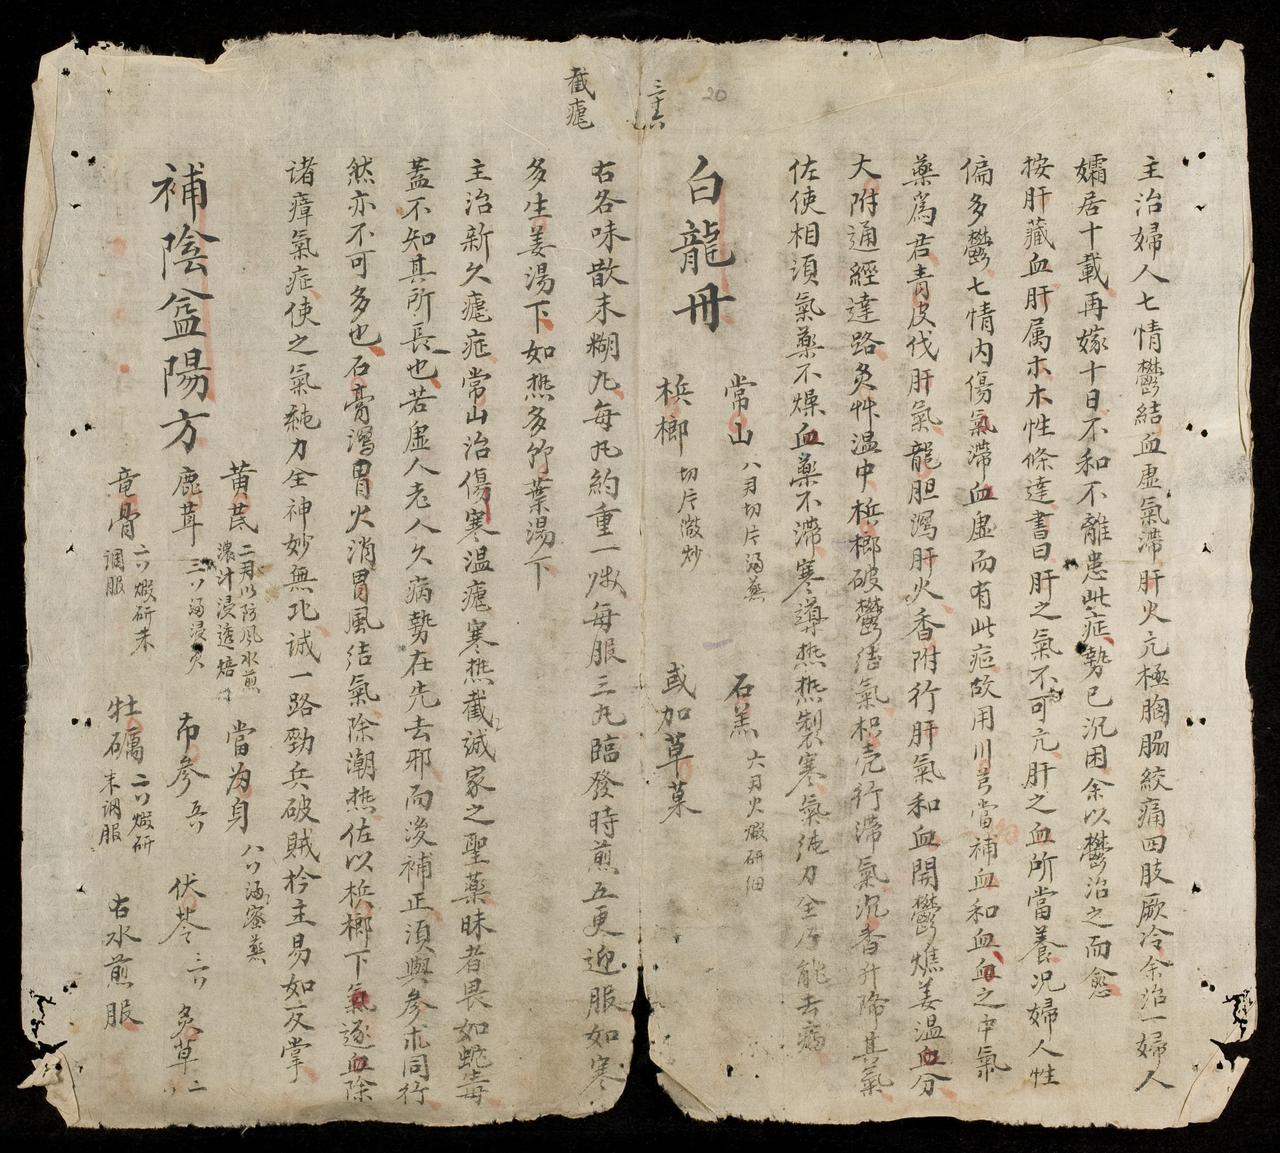 主治婦人七情鬱結血虛氣滯肝火亢極胸脇絞痛四肢厥冷余治一婦人
孀居十載再嫁十日不和不離患此症勢已沉困余以鬱治之而愈
按肝藏血肝属木木性條達書曰肝之氣不可亢肝之血所當養况婦人性
偏多鬱七情内傷氣滯血虛而有此症故用川芎當補血和血血之中氣
藥爲君青皮伐肝氣龍胆瀉肝火香附行肝氣和血開鬱燋姜温血分
大附通經達路炙艸温中梹榔破鬱氣枳壳行滯氣沉香升降其氣
佐使相須氣藥不燥血藥不滯寒導熱熱製寒氣純力全乃能去病
白龍冊
常山 八月切片酒蒸
石羔 六月火煅研細
梹榔 切片微炒
或加草菓
20
三十六
截瘧
右各味散末糊丸每丸約重一 每服三丸臨發時煎五更迎服如寒
多生姜湯下如熱多竹葉湯下
主治新久瘧症常山治傷寒温瘧寒熱截 誠家之聖藥昧者畏如蛇毒
蓋不知其所長也若虛人老人久病勢在先去邪而後補正須與參朮同行
然亦不可多也石膏瀉胃火消胃風结氣除潮熱佐以梹榔下氣逐血除
诸瘴氣症使之氣純力全神妙無比誠一路勁兵破賊 主易如反掌
補陰益陽方
黄芪 二月以防風水煎
濃汁浸透焙
當为身 八 酒蜜蒸
鹿茸 三 酒浸火
布參 五
伏苓 三
炙草 二
竜骨 六 煅研末
調服
牡礪 二 煅研
末调服
右水煎服